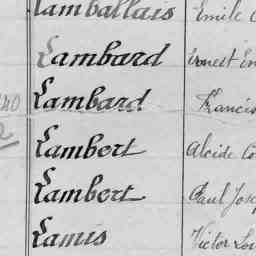 Lamballais Emile
Lambard Ernest
Lambard Francis
Lambert Alcide
Lambert Paul
Lamis Victor